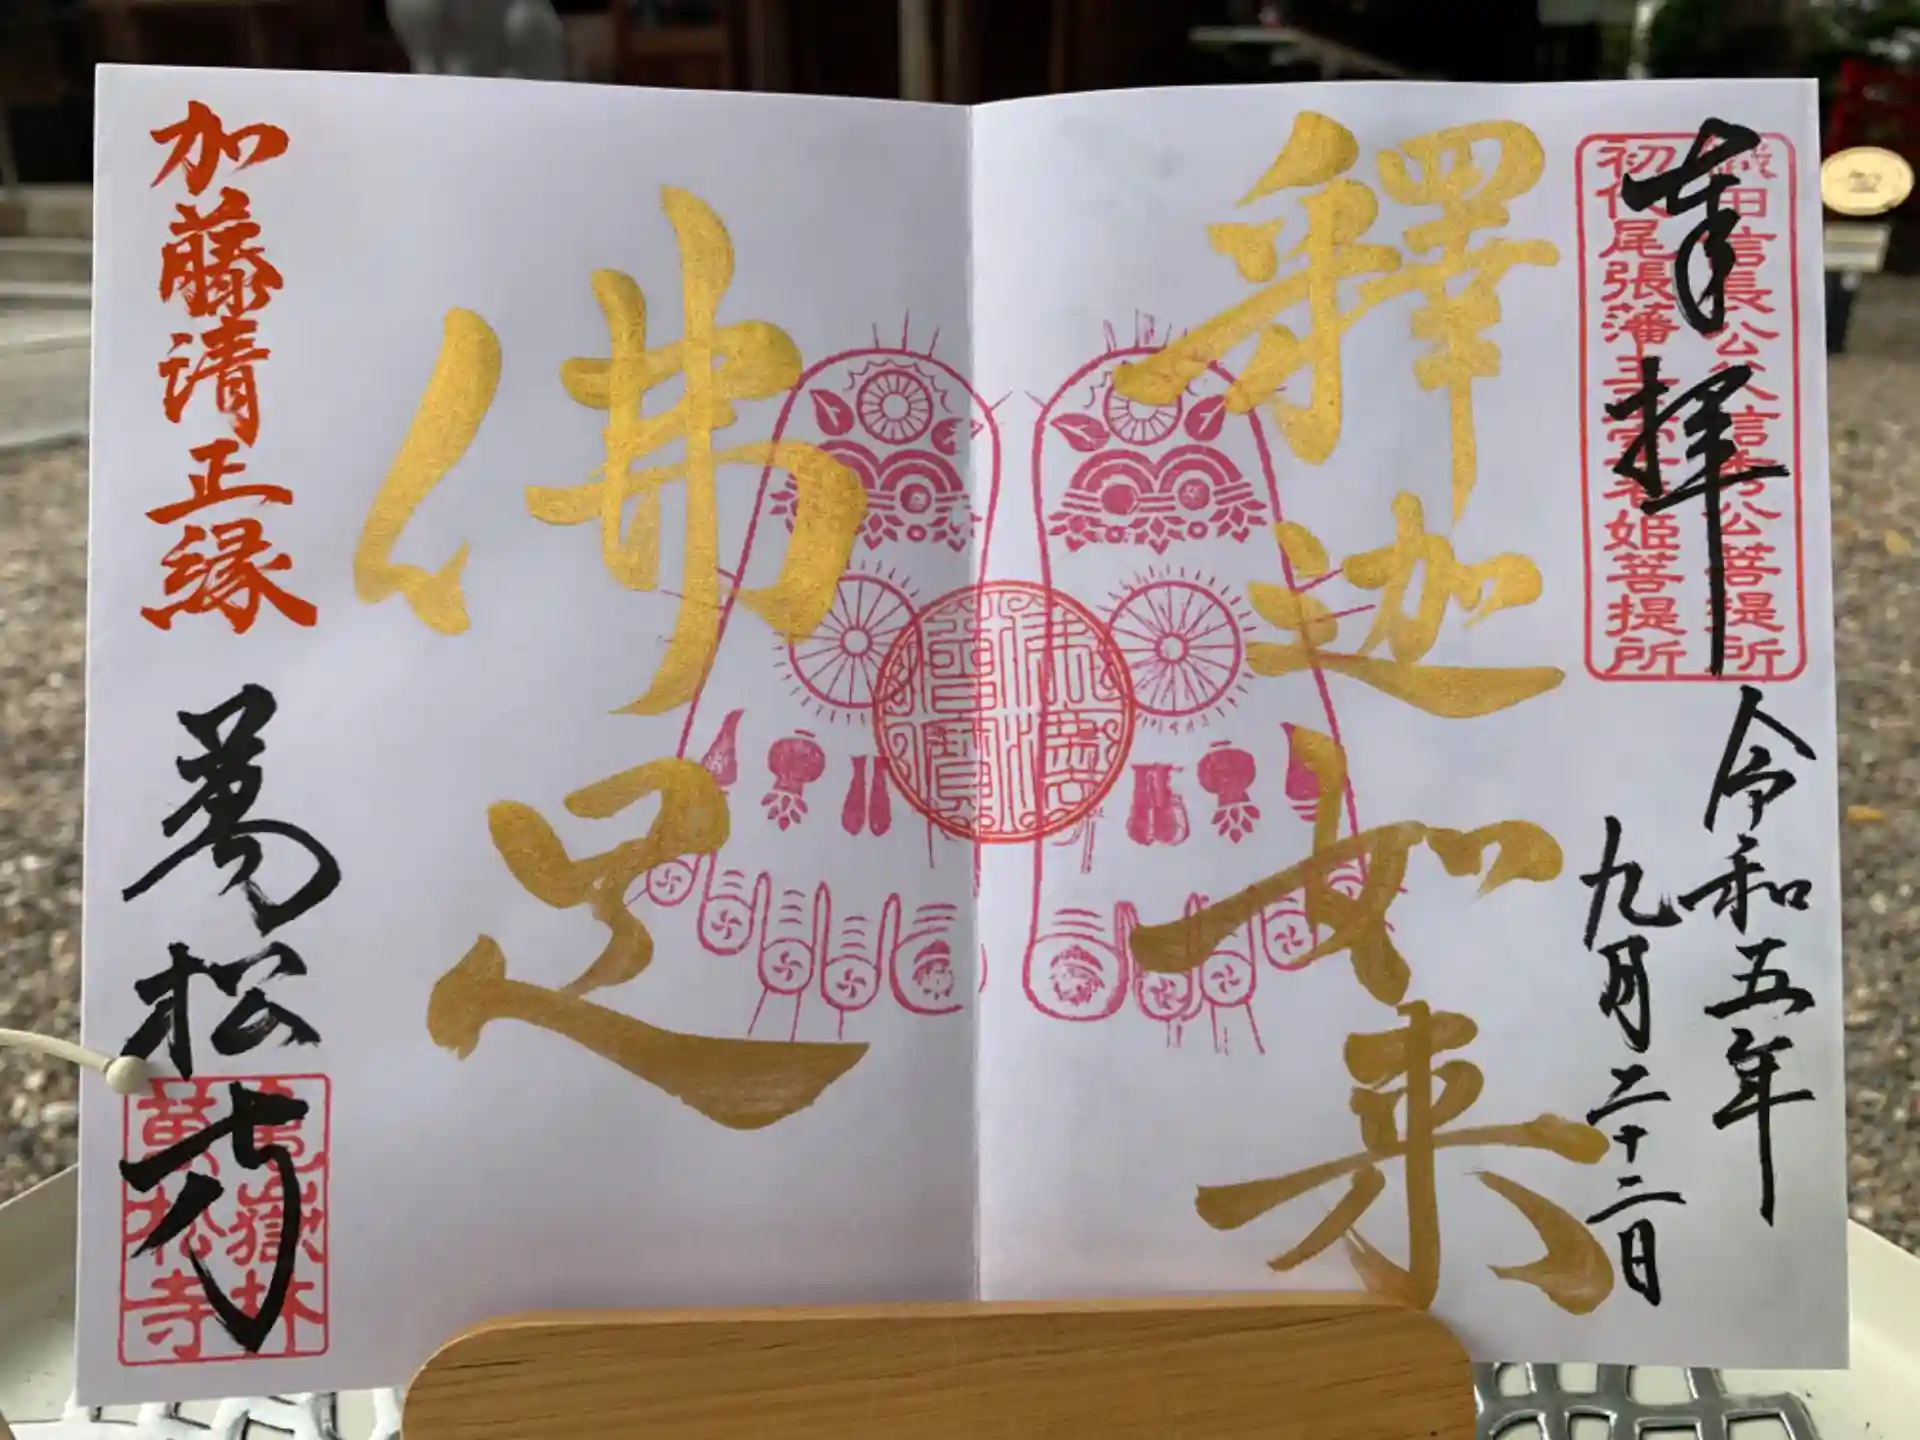 奉拝
織田信長公父信秀公菩提所
初代尾張藩主正室春姫菩提所
令和五年
九月二十二日
釋迦如来
佛足
加藤清正縁
萬松寺
亀嶽林
萬松寺